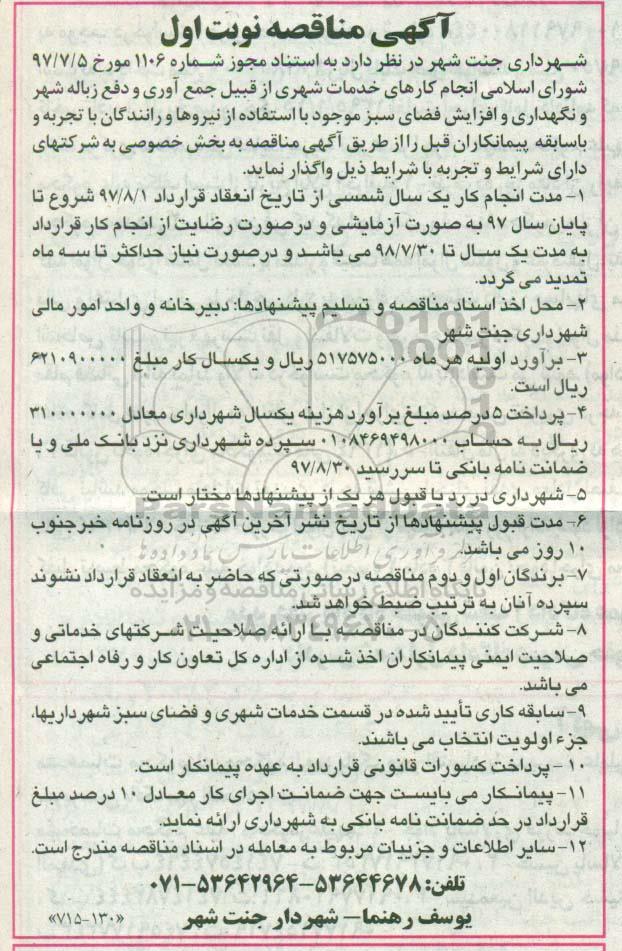 آگهی مناقصه نوبت اول
شهرداری جنت شهر در نظر دارد به استناد مجوز شماره ۱۱۰۶ مورخ ۹۷/۷/۵
شورای اسلامی انجام کارهای خدمات شهری از قبیل جمع آوری و دفع زباله شهر
و نگهداری و افزایش فضای سبز موجود با استفاده از نیروها و رانندگان با تجربه و
باسابقه پیمانکاران قبل را از طریق آگهی مناقصه به بخش خصوصی به شرکتهای
دارای شرایط و تجربه با شرایط ذیل واگذار نماید.
۱- مدت انجام کار یک سال شمسی از تاریخ انعقاد قرارداد ۹۷/۸/۱ شروع تا
پایان سال ۹۷ به صورت آزمایشی و درصورت رضایت از انجام کار قرارداد
به مدت یک سال تا ۹۸/۷/۳۰ می باشد و درصورت نیاز حداکثر تا سه ماه
تمدید می گردد.
۲- محل اخذ اسناد مناقصه و تسلیم پیشنهادها: دبیرخانه و واحد امور مالی
شهرداری جنت شهر
۳- برآورد اولیه هر ماه ۵۱۷۵۷۵۰۰۰ ریال و یکسال کار مبلغ ۶۲۱۰۹۰۰۰۰۰
ریال است.
۴- پرداخت ۵ درصد مبلغ برآورد هزینه یکسال شهرداری معادل ۳۱۰۰۰۰۰۰۰
ریال به حساب ۰۱۰۸۳۶۹۴۹۸۰۰۰ سپرده شهرداری نزد بانک ملی و یا
ضمانت نامه بانکی تا سررسید ۹۷/۸/۳۰
۵- شهرداری در رد یا قبول هر یک از پیشنهادها مختار است.
۶- مدت قبول پیشنهادها از تاریخ نشر آخرین آگهی در روزنامه خبرجنوب
۱۰ روز می باشد.
۷- برندگان اول و دوم مناقصه درصورتی که حاضر به انعقاد قرارداد نشوند
سپرده آنان به ترتیب ضبط خواهد شد.
۸- شرکت کنندگان در مناقصه با ارائه صلاحیت شرکتهای خدماتی و
صلاحیت ایمنی پیمانکاران اخذ شده از اداره کل تعاون کار و رفاه اجتماعی
می باشد.
۹- سابقه کاری تأیید شده در قسمت خدمات شهری و فضای سبز شهرداریها،
جزء اولویت انتخاب می باشند.
۱۰- پرداخت کسورات قانونی قرارداد به عهده پیمانکار است.
۱۱- پیمانکار می بایست جهت ضمانت اجرای کار معادل ۱۰ درصد مبلغ
قرارداد در حد ضمانت نامه بانکی به شهرداری ارائه نماید.
۱۲- سایر اطلاعات و جزییات مربوط به معامله در اسناد مناقصه مندرج است.
تلفن: ۵۳۶۴۴۶۷۸-۵۳۶۴۲۹۶۴-۰۷۱
یوسف رهنما- شهردار جنت شهر
«۷۱۵-۱۳۰»
ParsNamadData
پایگاه اطلاع رسانی مناقصه و مزایده